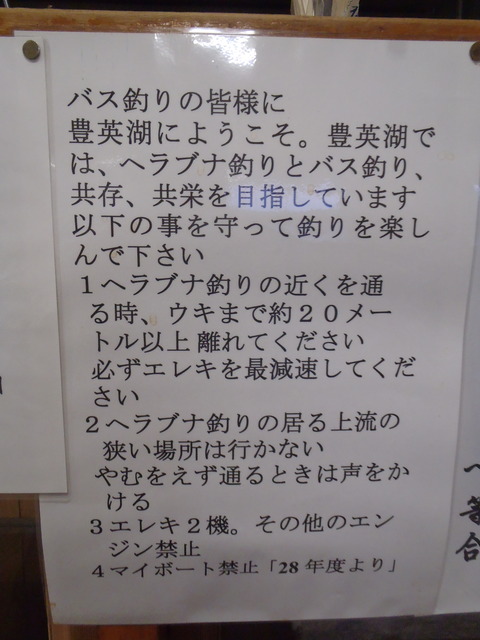 バス釣りの皆様に
豊英湖にようこそ。豊英湖で
は、ヘラブナ釣りとバス釣り、
共存、共栄を目指しています
以下の事を守って釣りを楽し
んで下さい
１ヘラブナ釣りの近くを通
る時、ウキまで約２０メー
トル以上離れてください
必ずエレキを最減速してくだ
さい
２ヘラブナ釣りの居る上流の
狭い場所は行かない
やむをえず通るときは声をか
ける
３エレキ２機。その他のエン
ジン禁止
４マイボート禁止「28年度より」